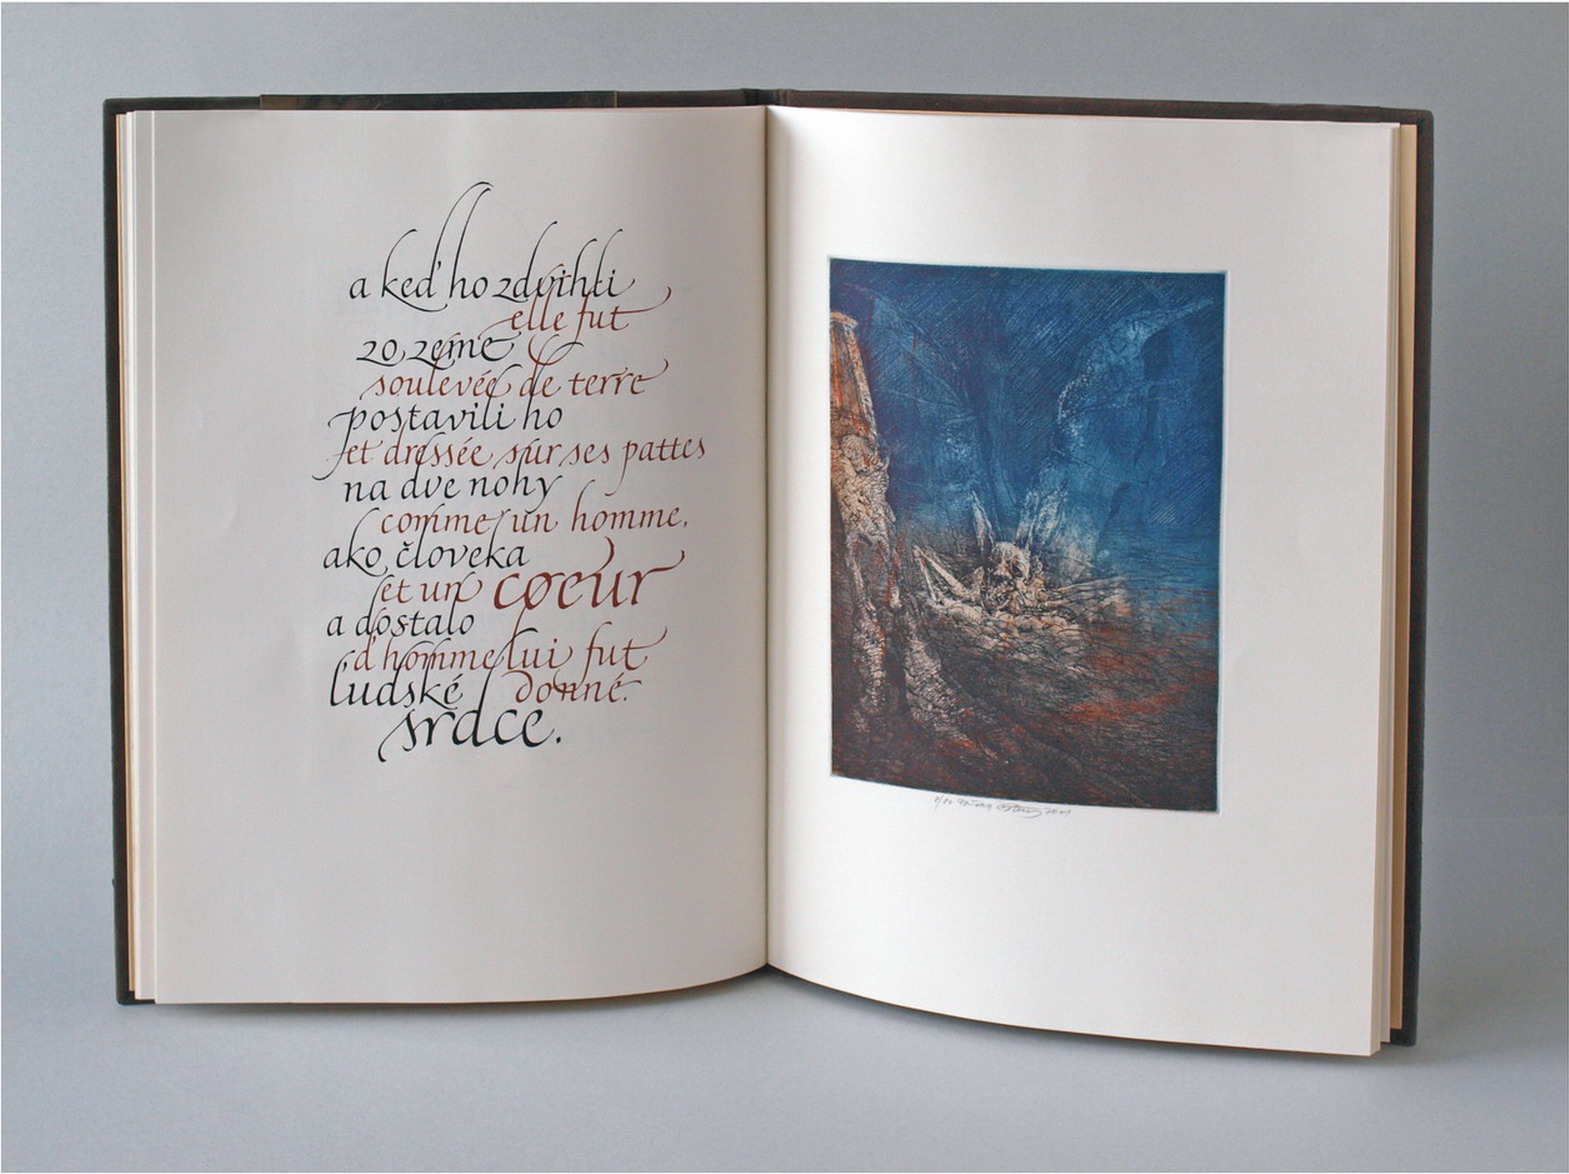 a keď ho zdvihli
elle fut
zo zeme
soulevée de terre
postavili ho
et dressée sur ses pattes
na dve nohy
comme un homme,
ako človeka
et un cœur
a dostalo
d'homme lui fut
ľudské donné.
srdce.